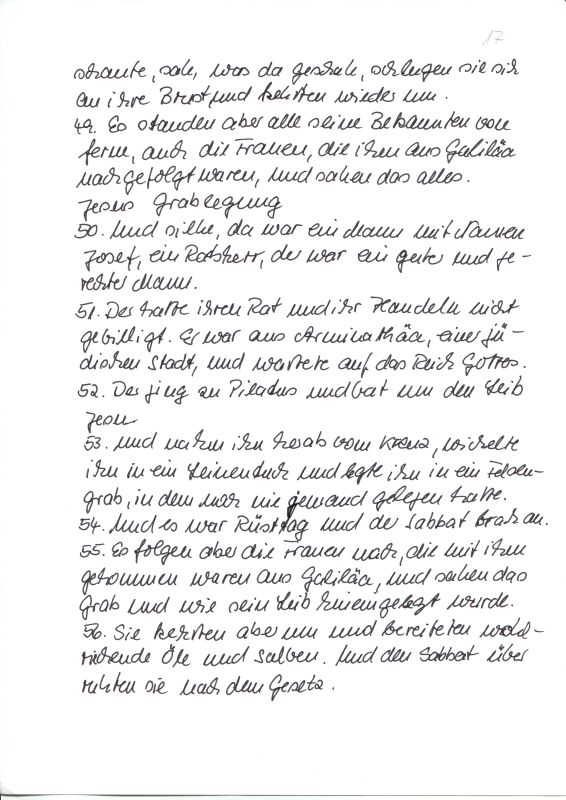 17
schaute, sah, was da geschah, schlugen sie sich
an ihre Brust, und kehrten wieder um.
49. Es standen aber alle seine Bekannten von
ferne, auch die Frauen, die ihm aus Galiläa
nachgefolgt waren, und sahen das alles.
Jesus Grablegung
50. Und siehe, da war ein Mann mit Namen
Josef, ein Ratsherr, der war ein guter und ge-
rechter Mann.
51. Der hatte ihren Rat und ihr Handeln nicht
gebilligt. Er war aus Arimathäa, einer jü-
dischen Stadt, und wartete auf das Reich Gottes.
52. Der ging zu Pilatus und bat um den Leib
Jesu.
53. und nahm ihn herab vom Kreuz, wickelte
ihn in ein Leinentuch und legte ihn in ein Felsen-
grab, in dem noch nie jemand gelegen hatte.
54. Und es war Rüsttag und der Sabbat brach an.
55. Es folgen aber die Frauen nach, die mit ihm
gekommen waren aus Galiläa, und sahen das
Grab und wie sein Leib hineingelegt wurde.
56. Sie kehrten aber um und bereiteten wohl-
riechende Öle und Salben. Und den Sabbat über
ruhten sie nach dem Gesetz.